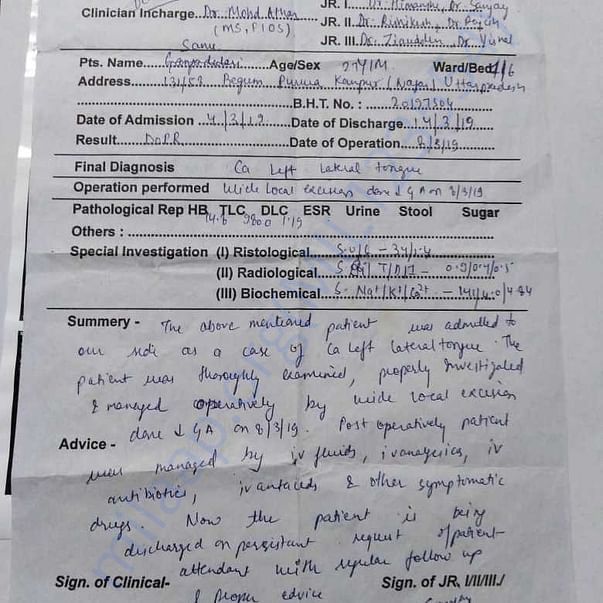 JR. I Dr. Himanshu, Dr Sanjay
Clinician Incharge Dr. Mohd Athar JR. II Dr. Rimikush, Dr Rajesh
(MS, FIOS) JR. III. Dr. Ziauddin, Dr Vishal
Sanu
Pts. Name Age/Sex 27Y/M Ward/Bed 4/6
Address 131/58 Begum Purwa Kanpur (Nagar) Uttarpradesh
B.H.T. No. : 20197304
Date of Admission 4/3/19 Date of Discharge 14/3/19
Result DOPR Date of Operation 8/3/19
Final Diagnosis Ca left lateral tongue
Operation performed wide local excision done ↓ GA on 8/3/19
Pathological Rep HB TLC DLC ESR Urine Stool Sugar
14.6 9800
Others :
Special Investigation (I) Ristological S. U/C - 34/1.4
(II) Radiological S. T/D/I - 0.9/0.4/0.5
(III) Biochemical S. Na+/K+/Ca2+ - 141/4.0/4.84
Summery - The above mentioned patient was admitted to
our side as a case of Ca left lateral tongue. The
patient was thoroughly examined, properly investigated
& managed operatively by wide local excision
done ↓ GA on 8/3/19. Post operatively patient
Advice -
was managed by iv fluids, iv anagesics, iv
antibiotics, iv antacids & other symptomatic
drugs. Now the patient is being
discharged on persistant request of patient
attendant with regular follow up
Sign. of Clinical- Sign. of JR. I/II/III./
& proper advice